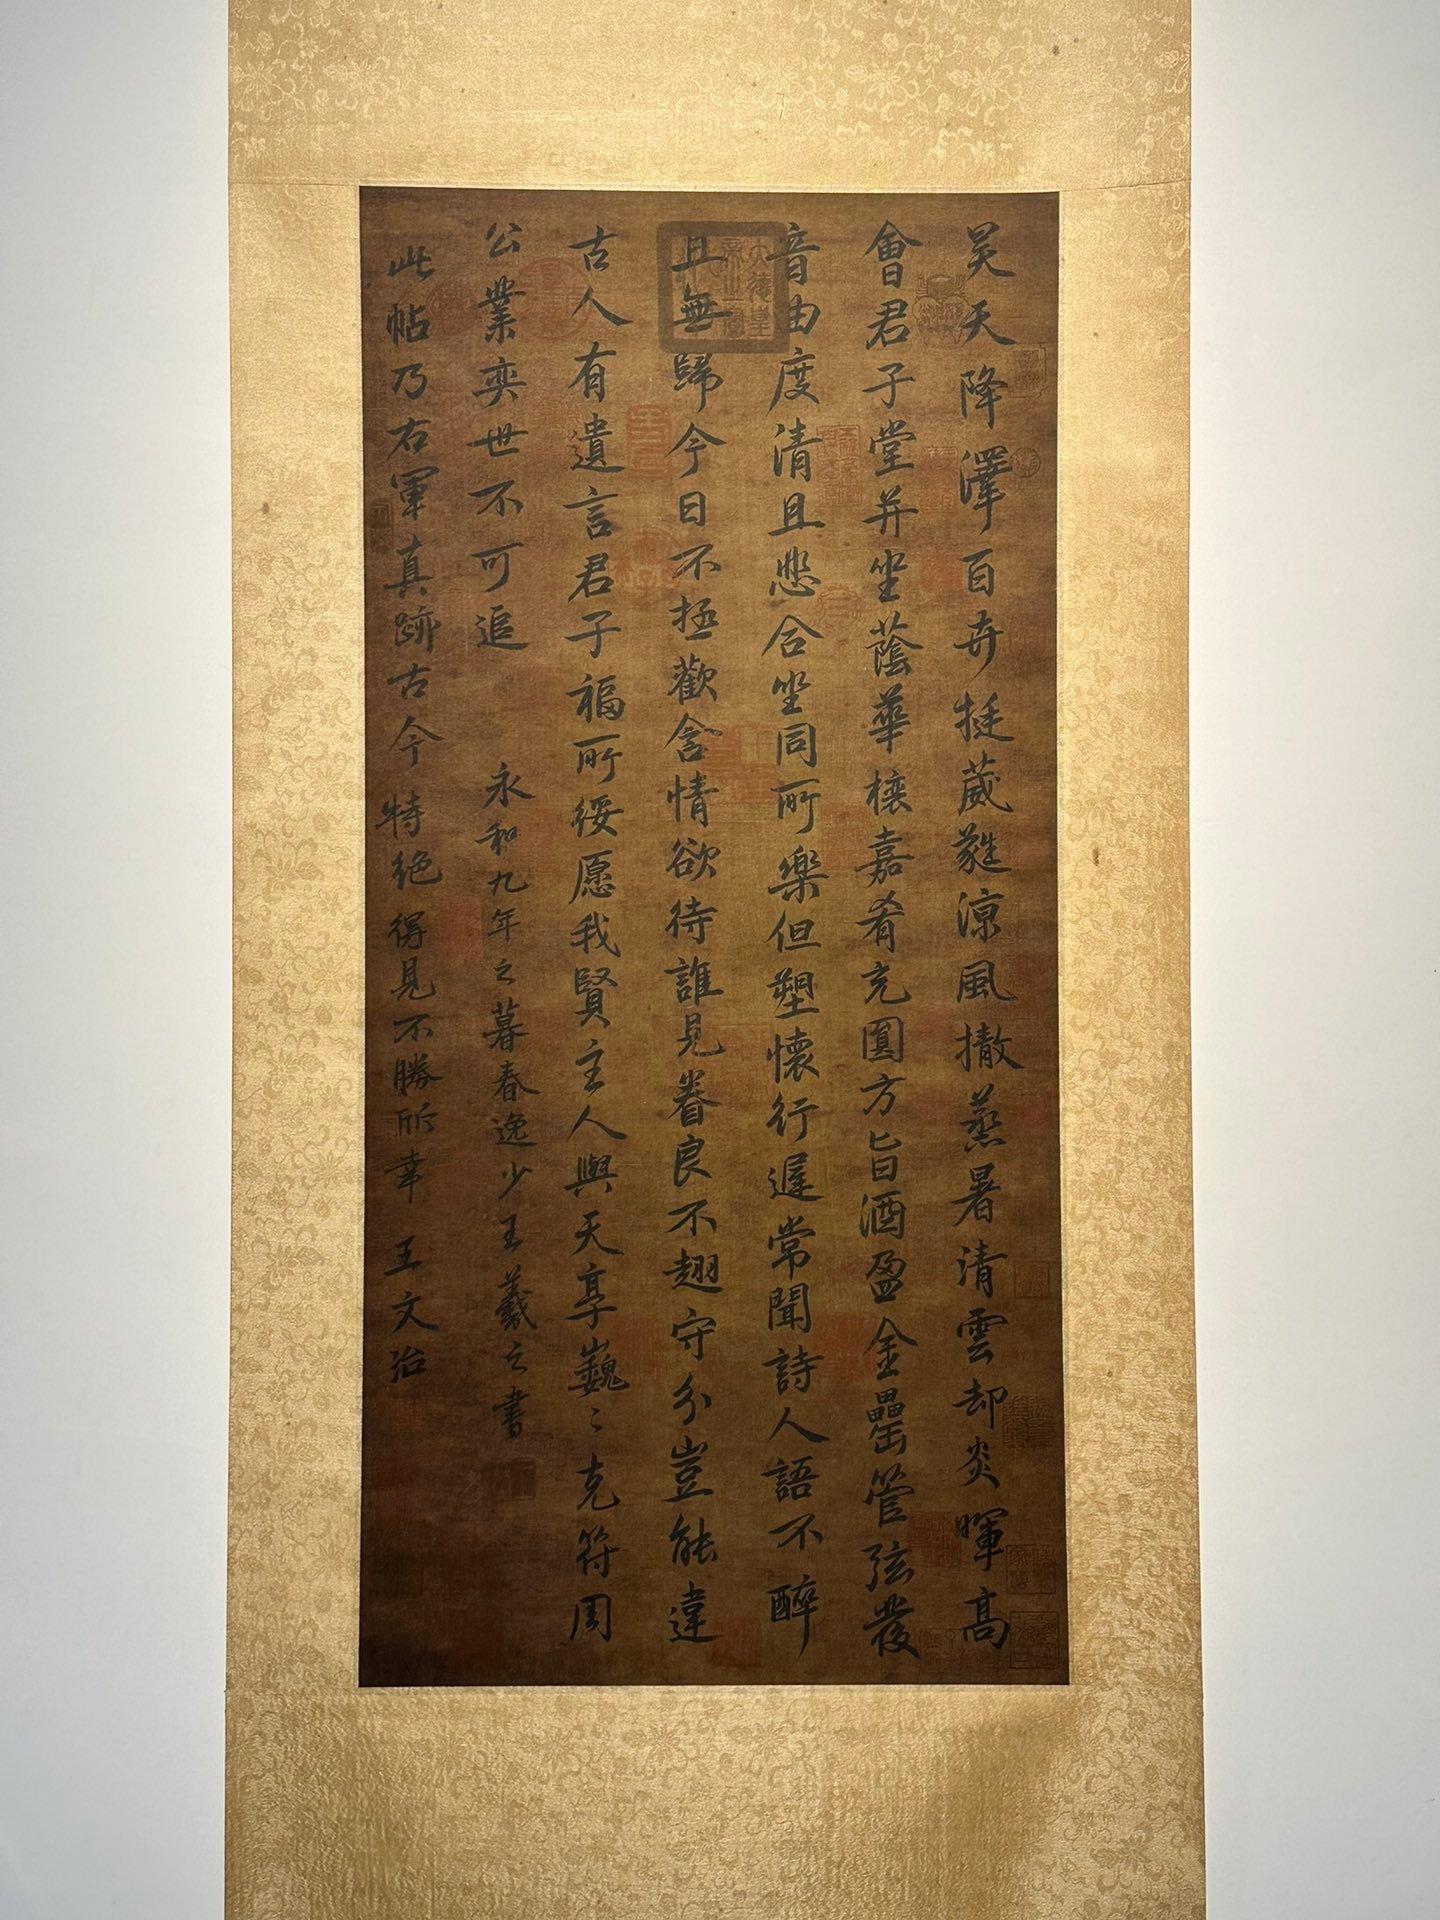 昊天降澤百卉挺葳蕤涼風撤蒸暑清雲却炎暉高
會君子堂并坐蔭華榱嘉肴充圓方旨酒盈金罍管弦發
音曲度清且悲合坐同所樂但塑懷行遲常聞詩人語不醉
且無歸今日不拯歡含情欲待誰見眷良不翅守分豈能違
古人有遺言君子福所綏愿我賢主人與天享巍〻克符周
公業奕世不可追
永和九年之暮春逸少王羲之書
此帖乃右軍真跡古今特絕得見不勝所幸 王文治